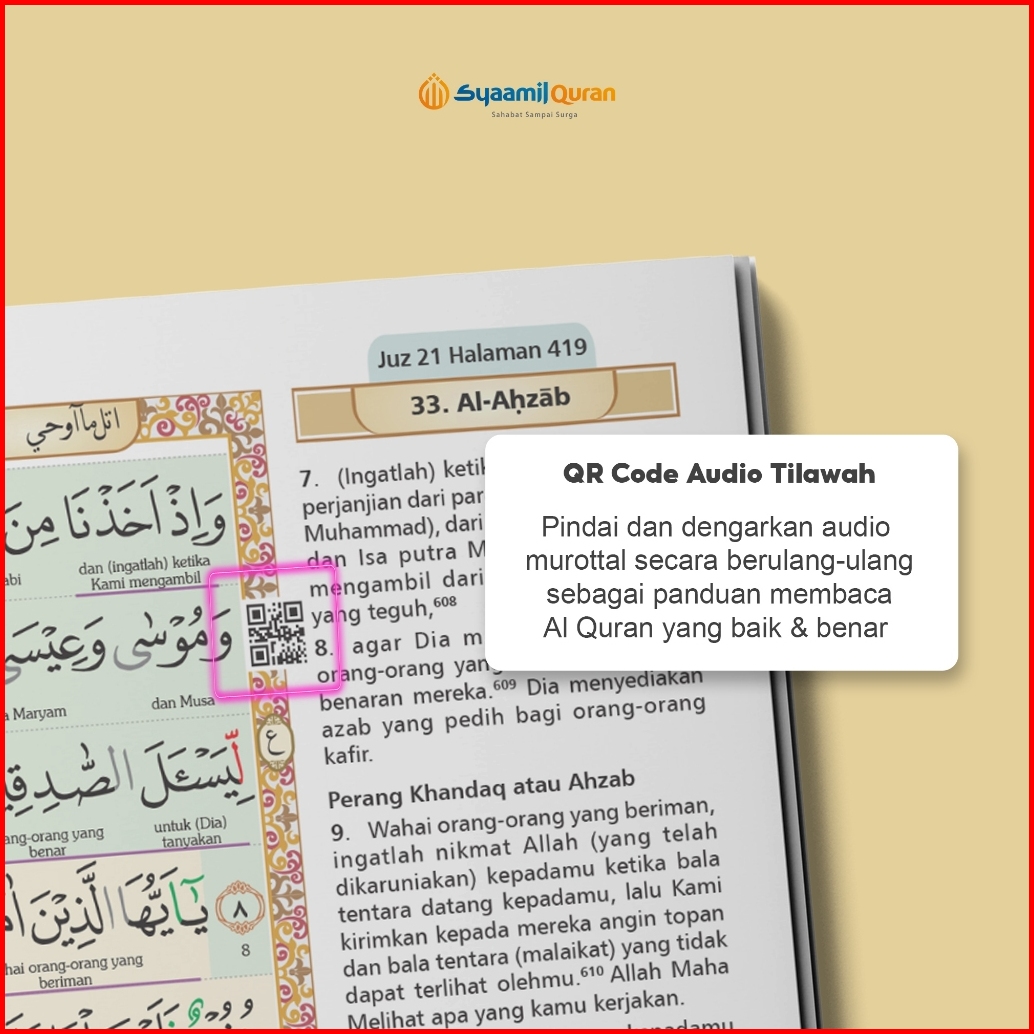 Syaamil Quran
Sahabat Sampai Surga
Juz 21 Halaman 419
33. Al-Aḥzāb
اتل ما اوحي
7. (Ingatlah) ketik
perjanjian dari par
Muhammad), dari
dan Isa putra M
mengambil dari
yang teguh,608
8. agar Dia m
orang-orang yan
benaran mereka.609 Dia menyediakan
azab yang pedih bagi orang-orang
kafir.
Perang Khandaq atau Ahzab
9. Wahai orang-orang yang beriman,
ingatlah nikmat Allah (yang telah
dikaruniakan) kepadamu ketika bala
tentara datang kepadamu, lalu Kami
kirimkan kepada mereka angin topan
dan bala tentara (malaikat) yang tidak
dapat terlihat olehmu.610 Allah Maha
Melihat apa yang kamu kerjakan.
kepadamu
QR Code Audio Tilawah
Pindai dan dengarkan audio
murottal secara berulang-ulang
sebagai panduan membaca
Al Quran yang baik & benar
وَاِذْ اَخَذْنَا مِنَ
abi dan (ingatlah) ketika
Kami mengambil
وَمُوْسٰى وَعِيْسَى
a Maryam dan Musa
ع
لِّيَسْـَٔلَ الصّٰدِقِيْ
ang-orang yang untuk (Dia)
benar tanyakan
يٰٓاَيُّهَا الَّذِيْنَ اٰ
٨
8
hai orang-orang yang
beriman